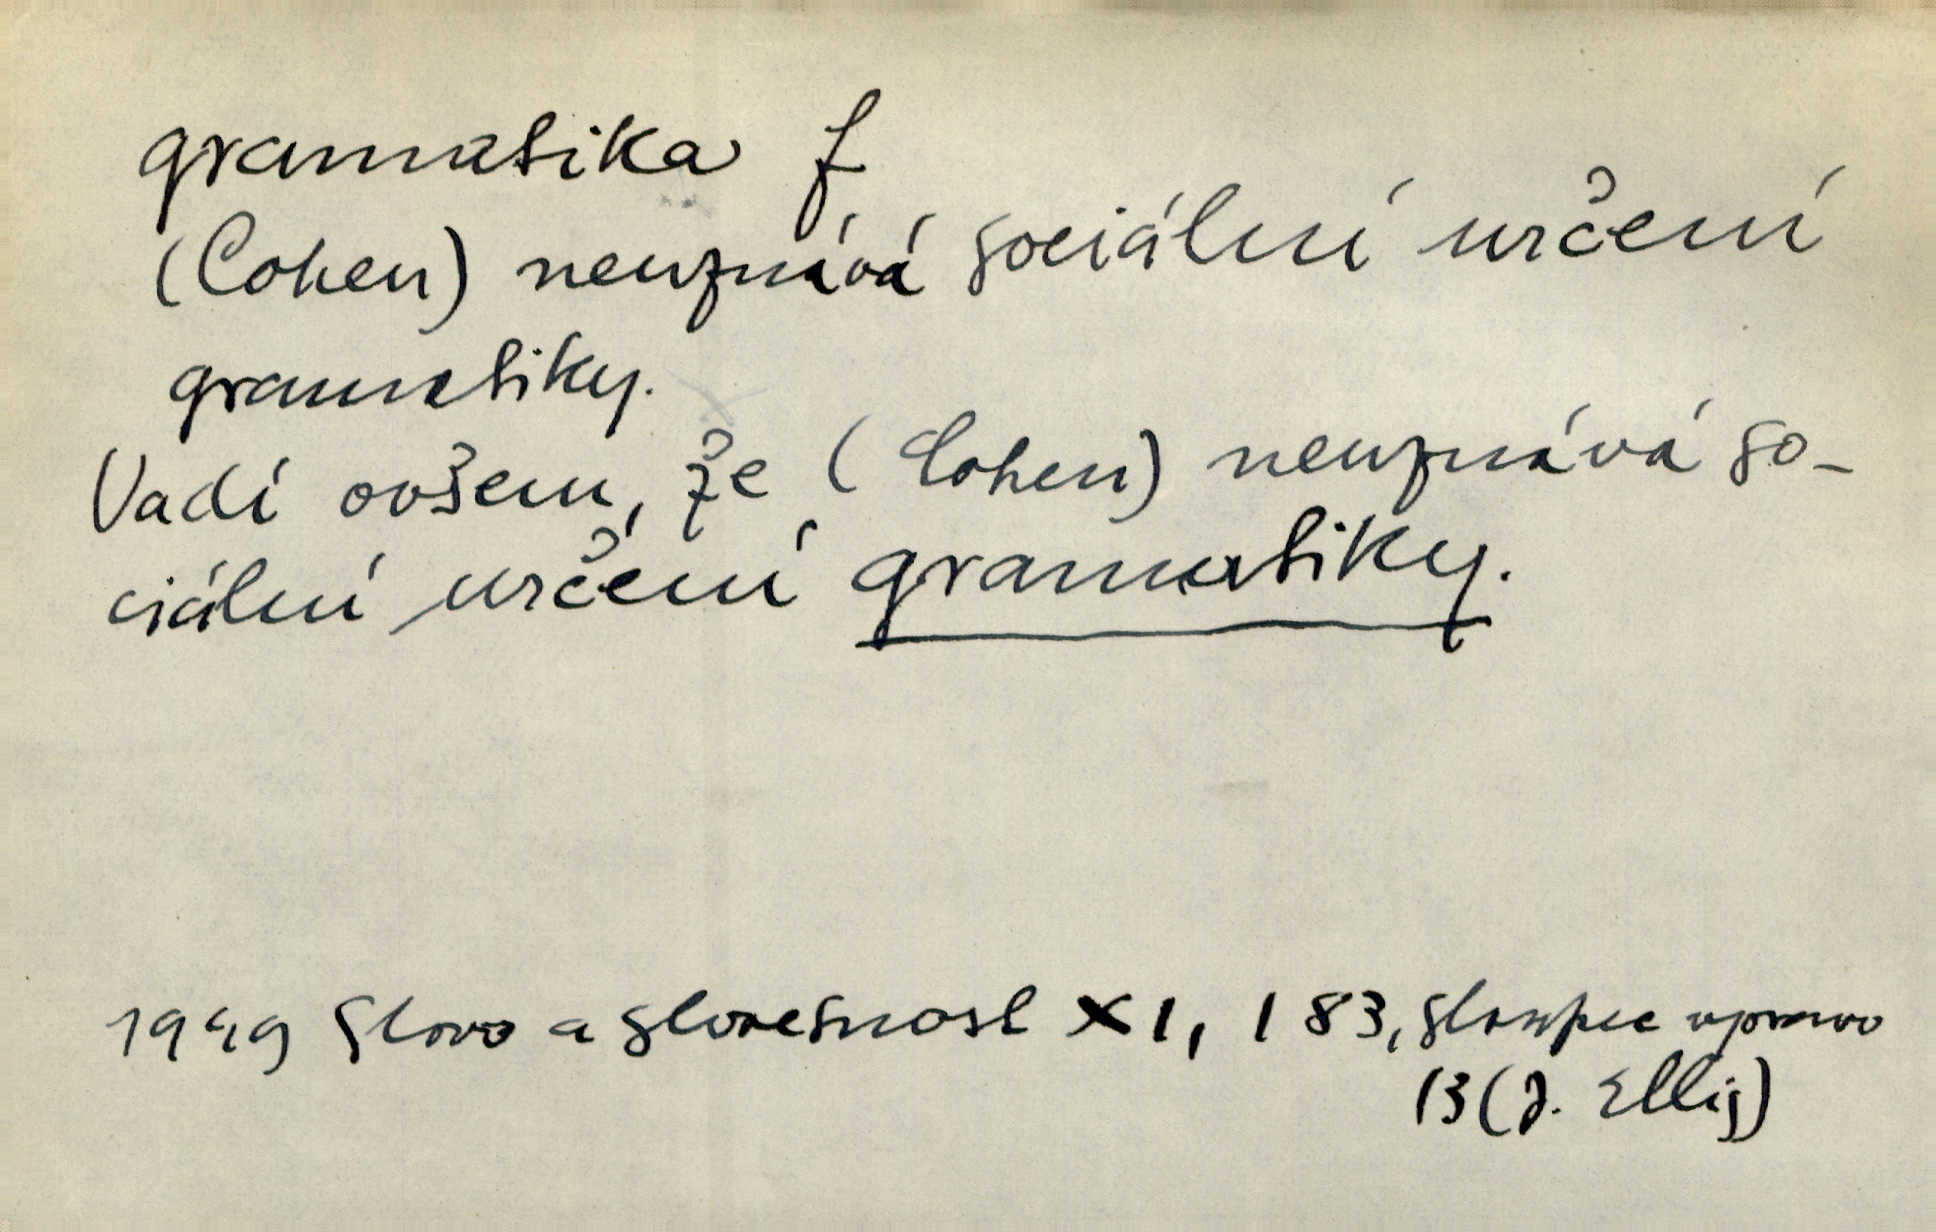 gramatika f
(Cohen) neuznává sociální určení
gramatiky.
Vadí ovšem, že (Cohen) neuznává so-
ciální určení gramatiky.
1949 Slovo a slovesnost XI, 183, sloupec vpravo
13 (J. Ellis)